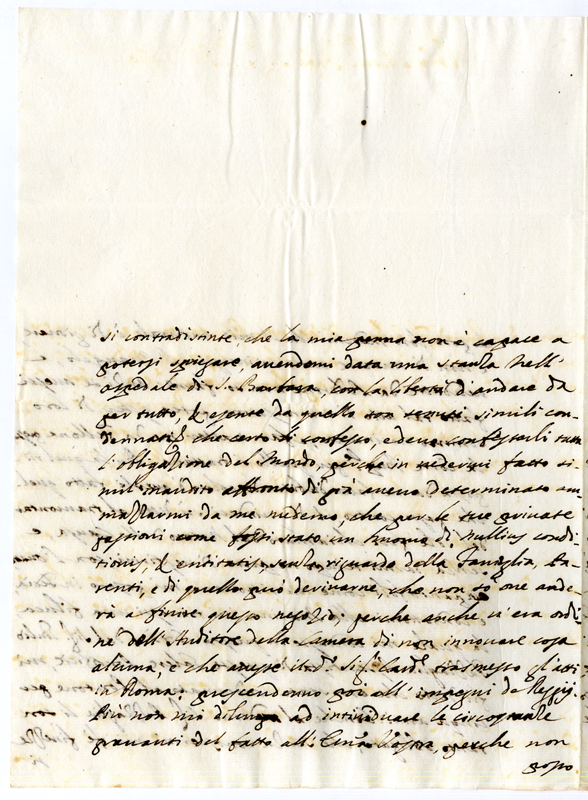 si contradistinte, che la mia penna non è capace a
potersi spiegare, avendomi data una stanza nell'
ospedale di S. Barbara, con la libertà d'andare da
per tutto, & esente da quello son tenuti simili con-
dennati, che certo li confesso, e devo confessarli tutta
l'obligazione del Mondo, perche in vedermi fatto si-
mil' inaudito affronto di già avevo determinato am-
mazzarmi da me medemo, che per le sue private
passioni come fossi stato un huomo di nullius condi-
tionis, & entitatis, senza riguardo della Famiglia, Pa-
renti, e di quello può derivarne, che non so one ande-
rà a finire questo negozio, perche anche vi era ordi-
ne dell'Auditore della Camera di non innovare cosa
alcuna, e che avesse il d.º Sig.r Card.e trasmesso gl'atti
in Roma; prescendendo poi all'impegni de Reggij.
Più non mi dilungo ad individuare le circostanze
gravanti del fatto all' Em.a Vostra, perche non
posso